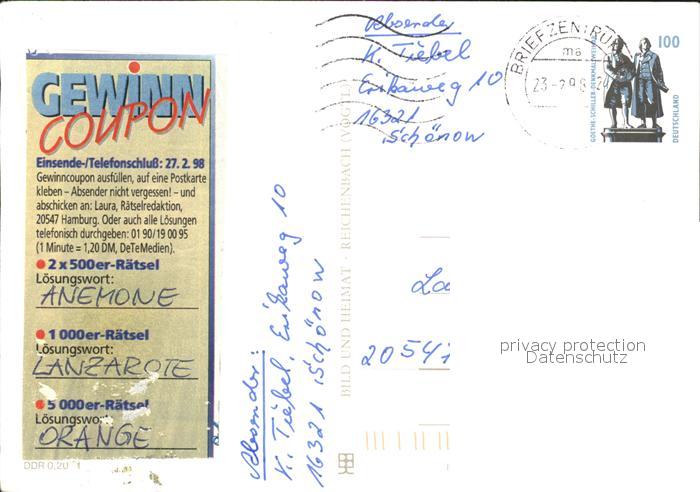 GEWINN
COUPON
Einsende-/Telefonschluß: 27. 2. 98
Gewinncoupon ausfüllen, auf eine Postkarte
kleben – Absender nicht vergessen! – und
abschicken an: Laura, Rätselredaktion,
20547 Hamburg. Oder auch alle Lösungen
telefonisch durchgeben: 01 90/19 00 95
(1 Minute = 1,20 DM, DeTeMedien).
2 x 500er-Rätsel
Lösungswort:
ANEMONE
1 000er-Rätsel
Lösungswort:
LANZAROTE
5 000er-Rätsel
Lösungswort:
ORANGE
DDR 0,20
Absender:
K. Tiebel, Erikaweg 10
16321 Schönow
BILD UND HEIMAT · REICHENBACH (VOGTL)
Absender
K. Tiebel
Erikaweg 10
16321
Schönow
BRIEFZENTRUM
ma
23.-2.98
GOETHE-SCHILLER-DENKMAL WEIMAR
100
DEUTSCHLAND
La
2054
privacy protection
Datenschutz